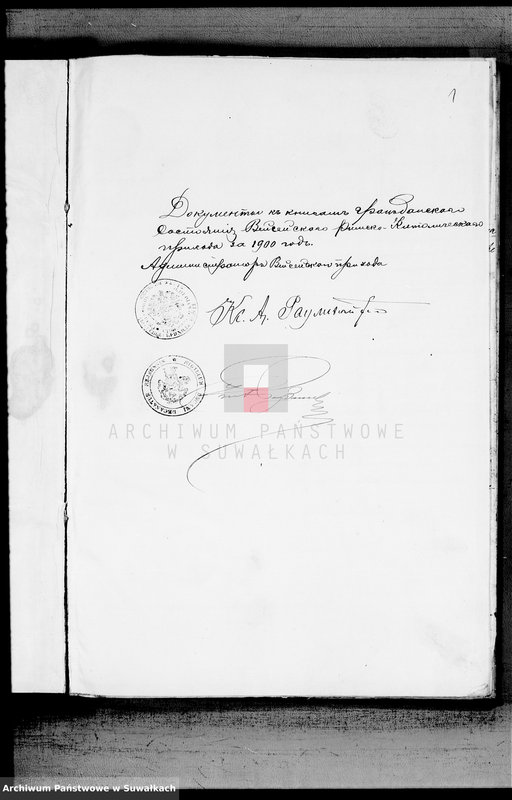 1
Документы къ книгамъ гражданского
состоянія Вейсейского римско-католического
прихода за 1900 годъ.
Администраторъ Вейсейского прихода
Кс. А.
ARCHIWUM PAŃSTWOWE
W SUWAŁKACH
Archiwum Państwowe w Suwałkach